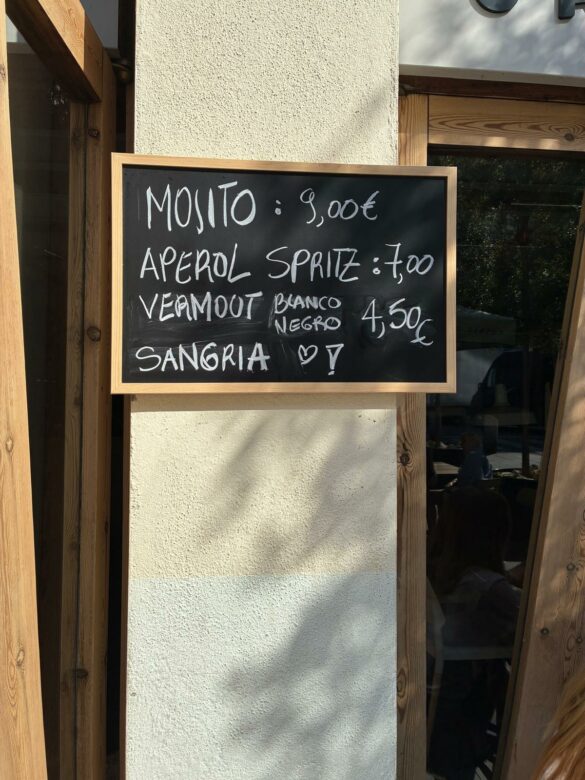 MOJITO : 9,00€
APEROL SPRITZ : 7,00
VERMOUT BLANCO NEGRO 4,50€
SANGRIA ♡!